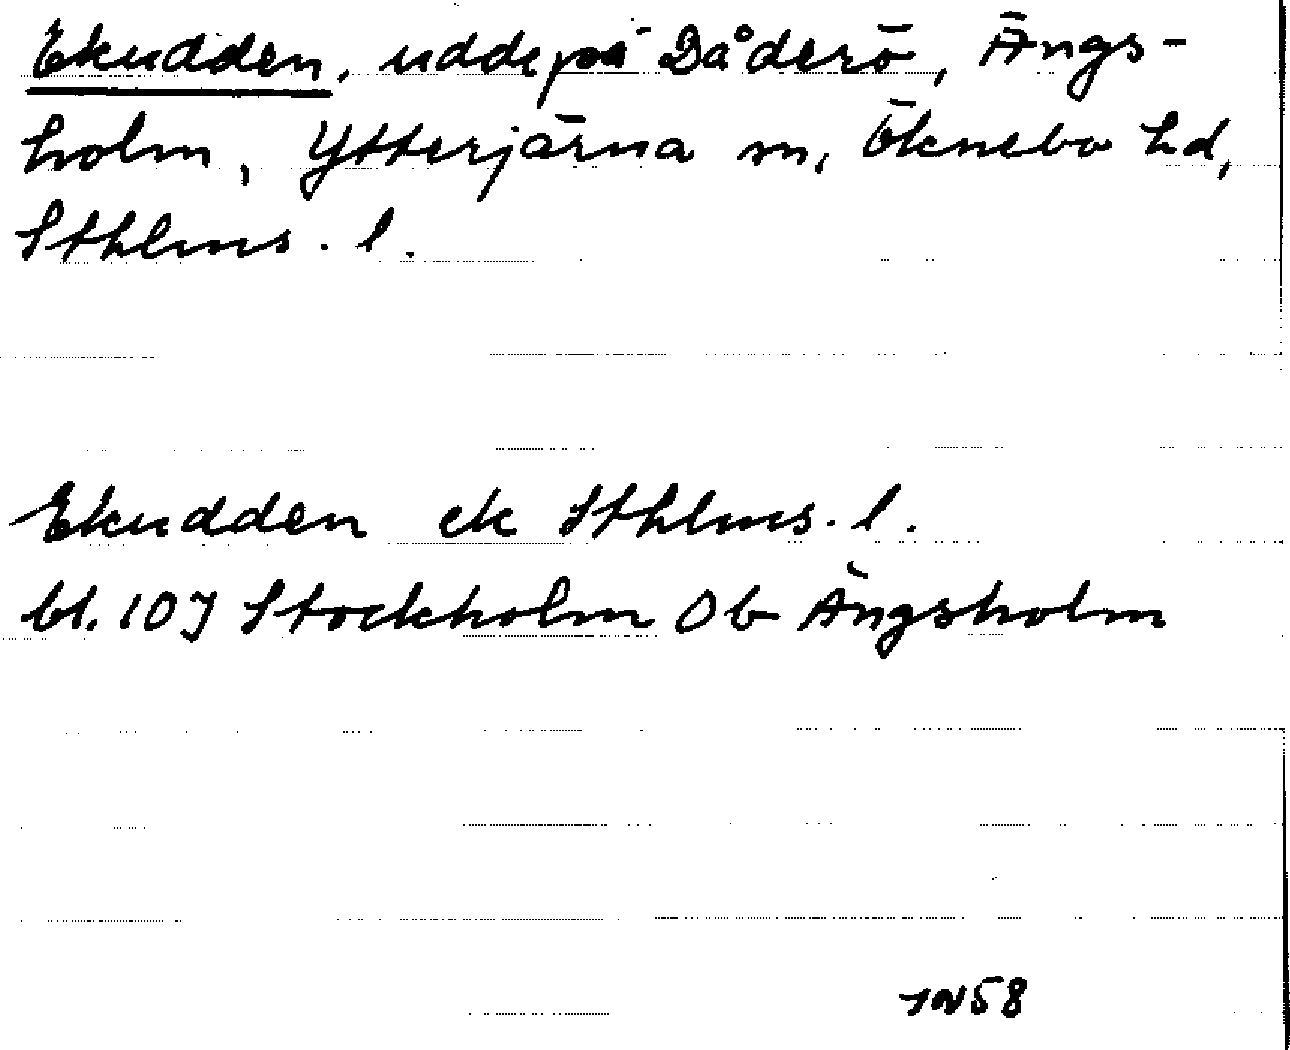 Ekudden, udde på Dåderö, Ängs-
holm, Ytterjärna sn, Öknebo hd,
Sthlms. l.
Ekudden ek Sthlms. l.
bl. 10J Stockholm Ob Ängsholm
58